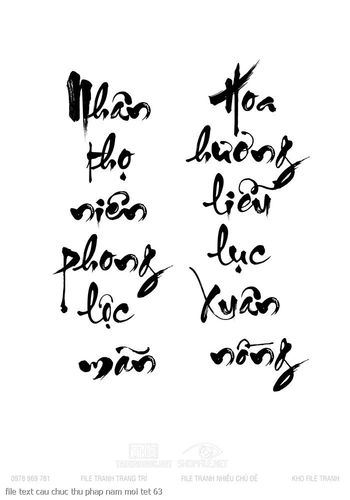 Nhân
thọ
niên
phong
lộc
mãn
Hoa
hưởng
liễu
lục
Xuân
nồng
TRANHNAM.NET
SHOPFILE.NET
0978 969 761 FILE TRANH TRANG TRÍ FILE TRANH NHIỀU CHỦ ĐỀ KHO FILE TRANH
file text cau chuc thu phap nam moi tet 63